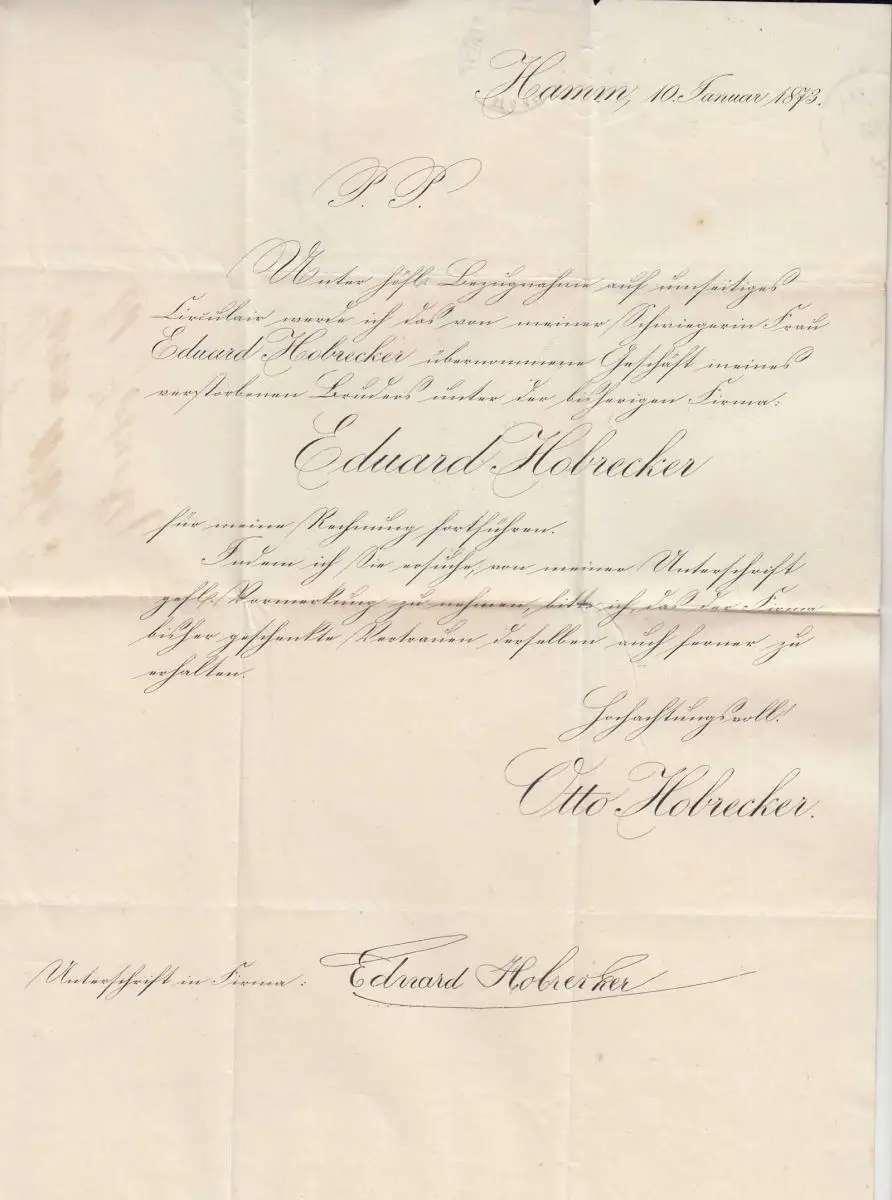 Hamm, 10. Januar 1873.
P. P.
Unter höfl. Bezugnahme auf umseitiges
Circulair werde ich das von meiner Schwiegerin Frau
Eduard Hobrecker übernommene Geschäft meines
verstorbenen Bruders unter der bisherigen Firma:
Eduard Hobrecker
für meine Rechnung fortführen.
Indem ich Sie ersuche, von meiner Unterschrift
gefl. Vormerkung zu nehmen, bitte ich, das der Firma
bisher geschenkte Vertrauen derselben auch ferner zu
erhalten.
Hochachtungsvoll!
Otto Hobrecker.
Unterschrift in Firma: Eduard Hobrecker